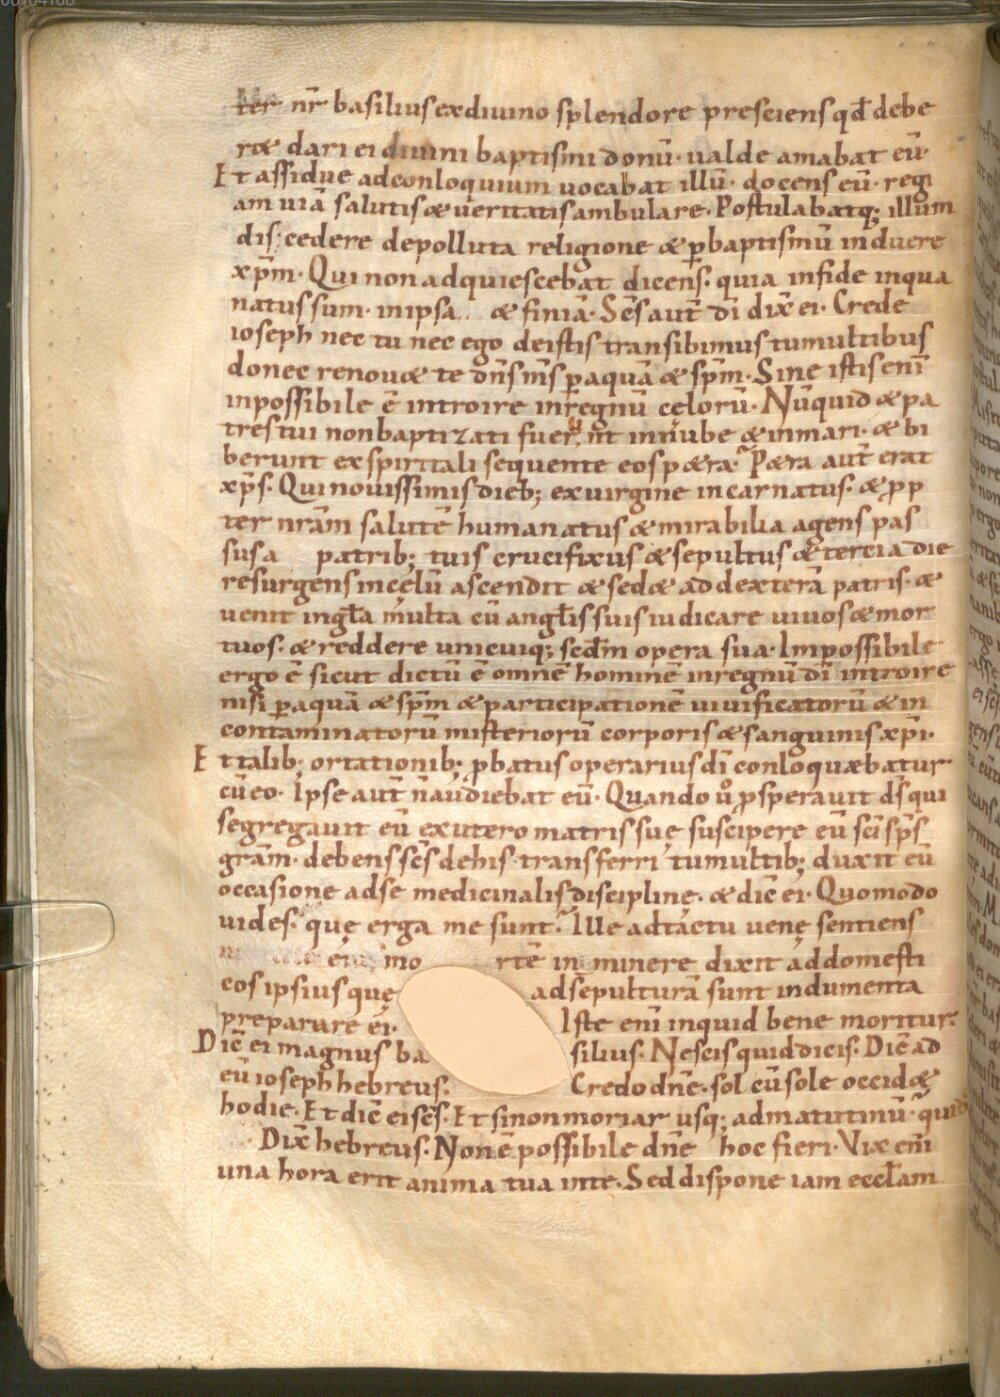 ter nr̄ basilius ex diuino splendore presciens qđ debe
ret dari ei diuini baptismi donū· ualde amabat eū·
Et assidue ad conloquium uocabat illū· docens eū· regi
am uiā salutis & ueritatis ambulare· Postulabatq; illum
discedere de polluta religione & p̱ baptismū induere
xp̄m· Qui non adquiescebat dicens· quia in fide in qua
natus sum· in ipsa & finiā· Sc̄s aut̄ dī dix̄ ei· Crede
ioseph nec tu nec ego de istis transibimus tumultibus
donec renou& te dn̄s in's p̱ aquā & sp̄m· Sine istis enī
inpossibile ē introire in regnū celorū· Nūquid & pa
tres tui non baptizati fuerunt in nube & in mari· & bi
berunt ex spiritali sequente eos p&ra· P&ra aut̄ erat
xp̄s· Qui nouissimis dieb; ex uirgine incarnatus· & pp
ter nrām salutē humanatus & mirabilia agens pas
sus a patrib; tuis crucifixus & sepultus & tercia die
resurgens in cęlū ascendit & sed& ad dexterā patris· &
uenit in gła multa cū angłis suis iudicare uiuos & mor
tuos· & reddere unicuiq; secđm opera sua· Impossibile
ergo ē sicut dictū ē omnē hominē in regnū dī introire
nisi p̱ aquā & sp̄m & participationē uiuificatorū & in
contaminatorū misteriorū corporis & sanguinis xp̄i·
Et talib; ortationib; p̱batus operarius dī conloqu&batur
cū eo· Ipse aut̄ n̄ audiebat eū· Quando ů p̱sperauit dš qui
segregauit eū ex utero matris suę suscipere eū scī sp̄s
grām· debens sc̄s de his transferri tumultib; duxit eū
occasione ad se medicinalis discipline· & dic̄ ei· Quomodo
uides· quę erga me sunt· Ille ad tactu uenę sentiens
ei mo rtē in minere dixit ad domesti
cos ipsius quę ad sepulturā sunt indumenta
preparare ei· Iste enī inquid bene moritur·
Dic̄ ei magnus ba silius· Nescis quid dicis· Dic̄ ad
eū ioseph hebreus· Credo dn̄e· sol cū sole occid&
hodie· Et dic̄ ei sc̄s· Et si non moriar usq; ad matutinū· quid
Dix̄ hebreus· Non ē possibile dn̄e hoc fieri· Vix enī
una hora erit anima tua in te· Sed dispone iam eccłam